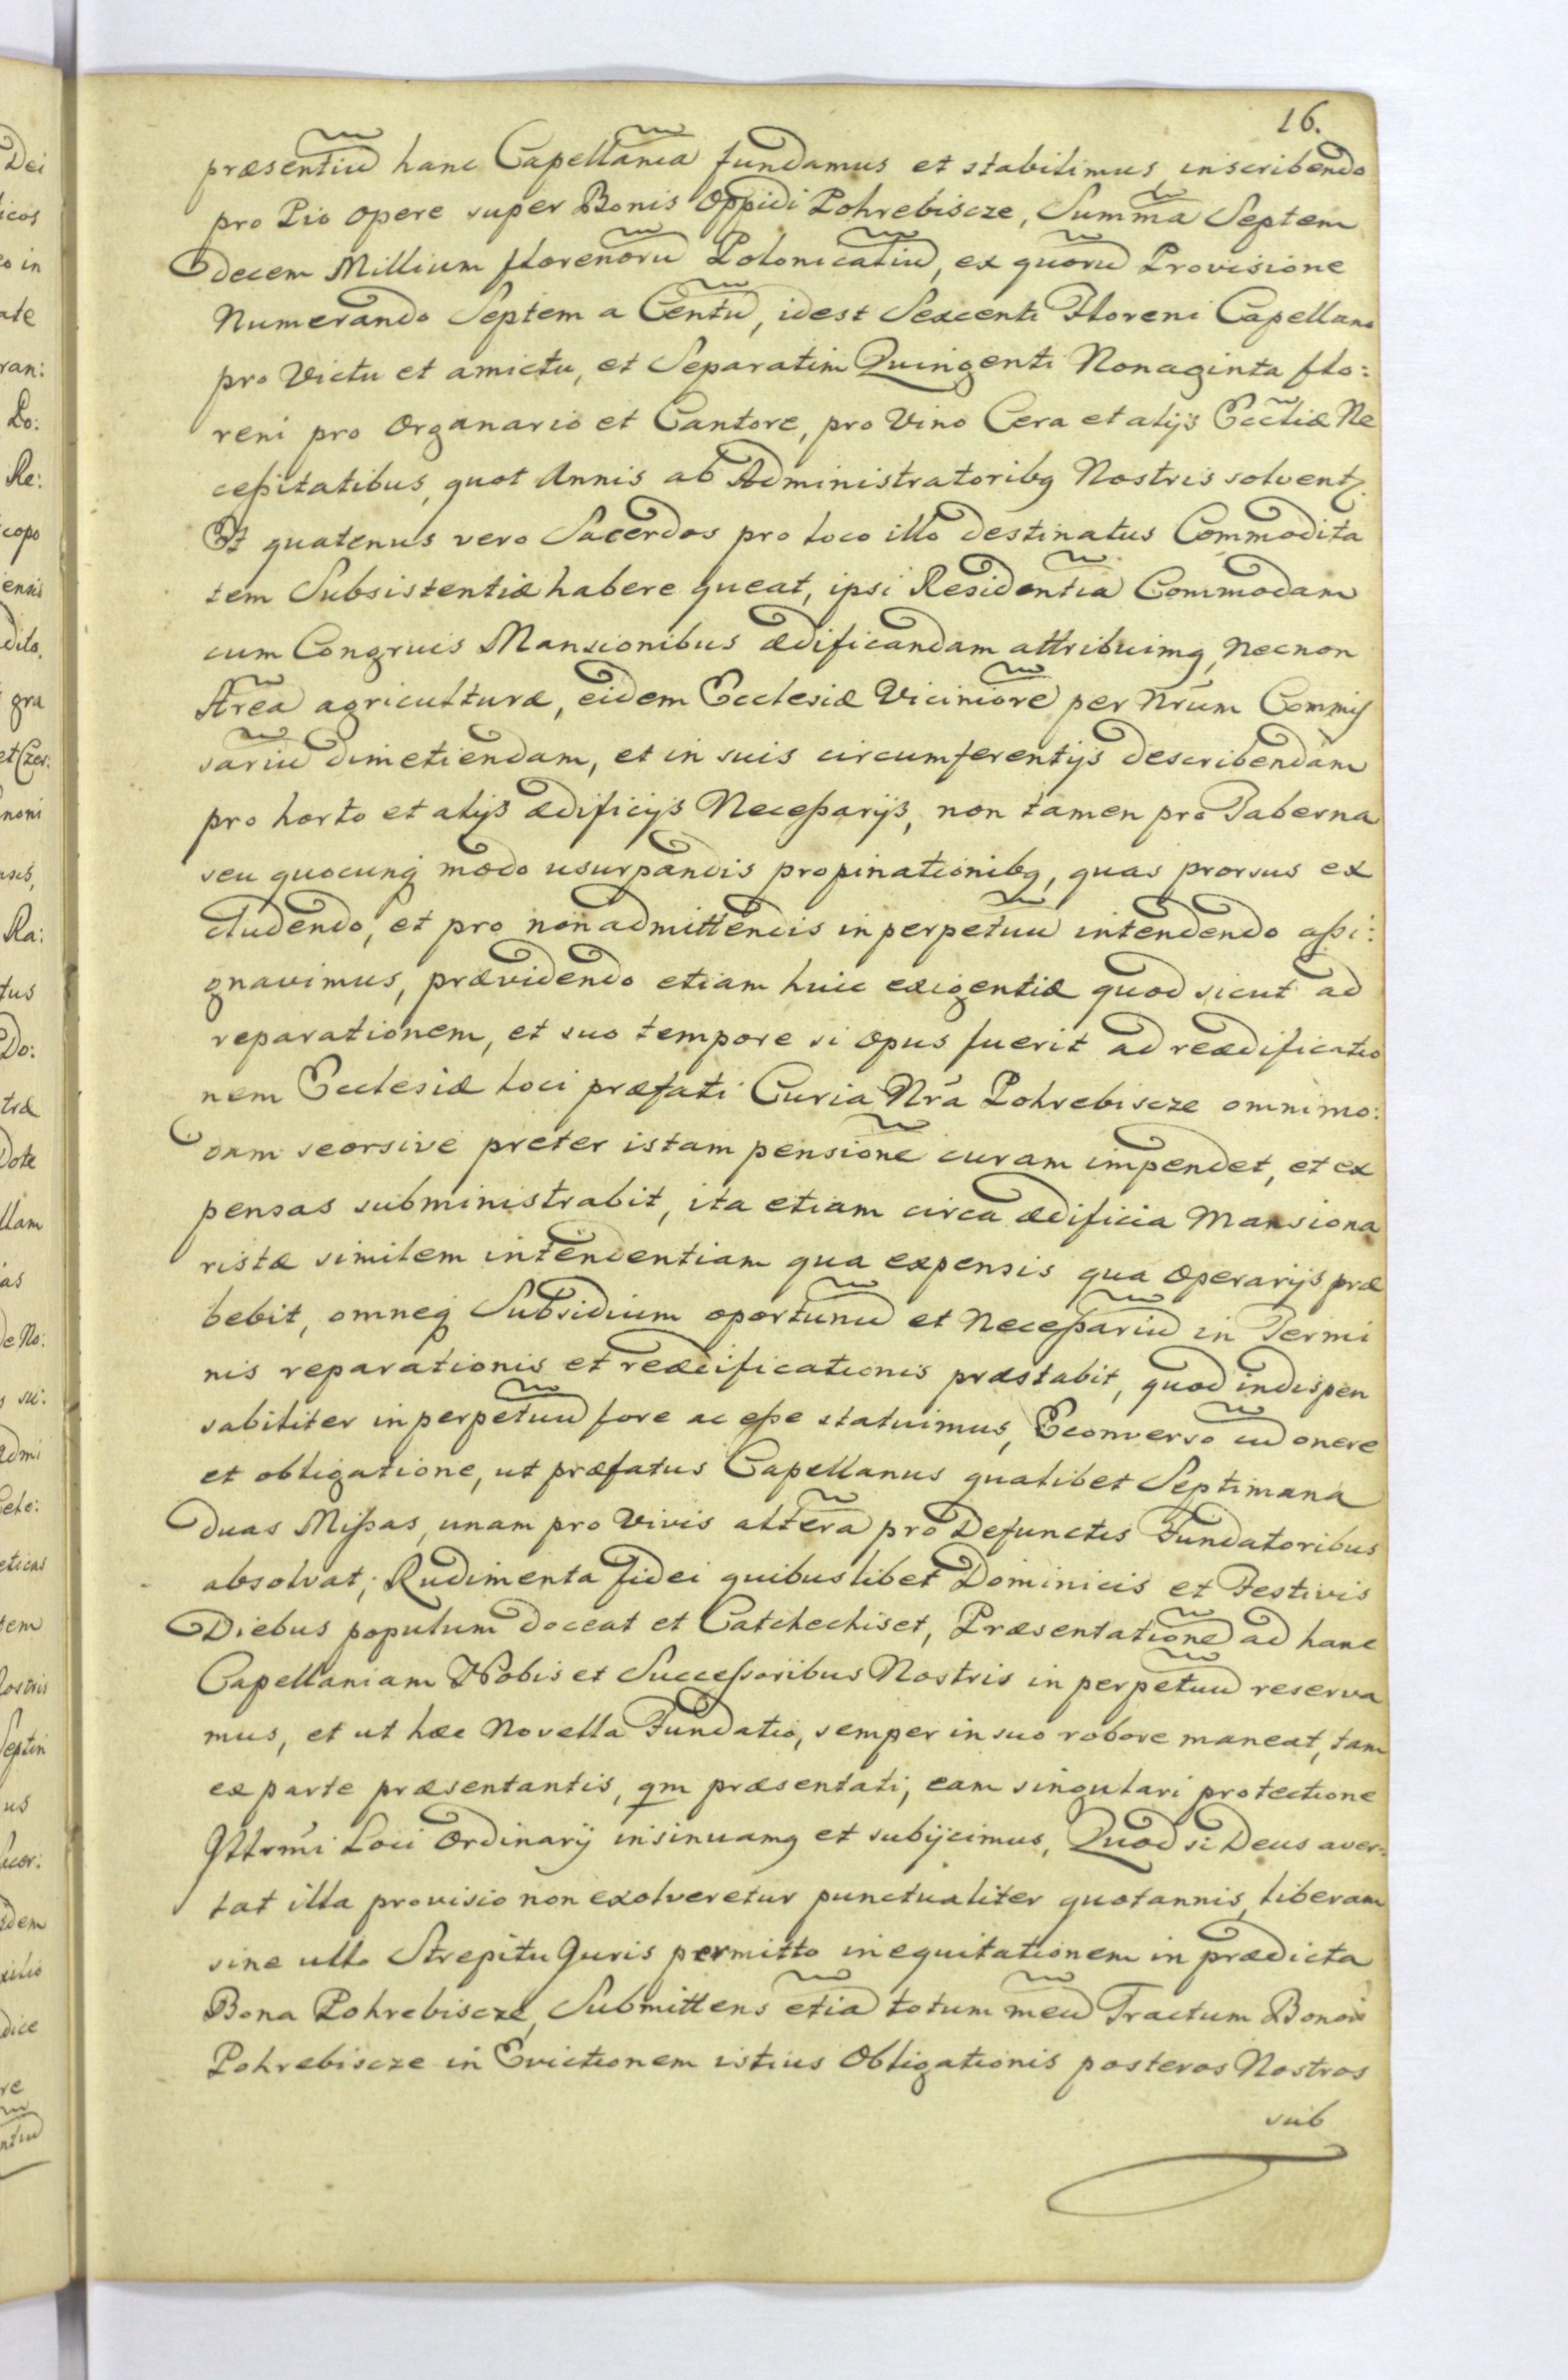 16.
præsentiū hanc Capellaniā fundamus et stabilimus, inscribendo
pro Pio opere super Bonis Oppidi Pohrebiscze, Summā Septem
decem Millium florenorū Polonicaliū, ex quorū Provisione
Numerando Septem a Centū, idest Sexcenti Floreni Capellano
pro Victu et amictu, et Separatim Quingenti Nonaginta flo:
reni pro Organario et Cantore, pro Vino Cera et alijs Eccliæ Ne
ceßitatibus, quot Annis ab Administratoribq Nostris solventr.
Et quatenus vero Sacerdos pro loco illo destinatus Commodita
tem Subsistentiæ habere queat, ipsi Residentiā Commodam
cum Congruis Mansionibus ædificandam attribuimq, Necnon
Areā agriculturæ, eidem Ecclesiæ Viciniorē per Nrum Commis
sariū dimetiendam, et in suis circumferentijs describendam
pro horto et alijs ædificijs Neceßarijs, non tamen pro Taberna
seu quocunq modo usurpandis propinationibq, quas prorsus ex
cludendo, et pro non admittendis in perpetuū intendendo aßi:
gnavimus, prævidendo etiam huic exigentiæ quod sicut ad
reparationem, et suo tempore si opus fuerit ad reædificatio
nem Ecclesiæ loci præfati Curia Nrā Pohrebiscze omnimo:
dam seorsive preter istam pensionē curam impendet, et ex
pensas subministrabit, ita etiam circa ædificia Mansiona
ristæ similem intendentiam qua expensis qua Operarijs præ
bebit, omneq Subsidium oportunū et Neceßariū in Termi
nis reparationis et reædificationis præstabit, quod indispen
sabiliter in perpetuū fore ac eße statuimus, Econverso cū onere
et obligatione, ut præfatus Capellanus qualibet Septimana
duas Mißas, unam pro Vivis alterā pro Defunctis Fundatoribus
absolvat; Rudimenta fidei quibuslibet Dominicis et Festivis
Diebus populum doceat et Catechechiset, Præsentationē ad hanc
Capellaniam Nobis et Succeßoribus Nostris in perpetuū reserva
mus, et ut hæc Novella Fundatio, semper in suo robore maneat, tam
ex parte præsentantis, qm præsentati, eam singulari protectione
Illrmi Loci Ordinarij insinuamq et subijcimus, Quod si Deus aver:
tat illa provisio non exolveretur punctualiter quotannis, liberam
sine ullo Strepitu Juris permitto inequitationem in prædicta
Bona Pohrebiscze, Submittens etiā totum meū Tractum Bonorū
Pohrebiscze in Evictionem istius Obligationis posteros Nostros
sub